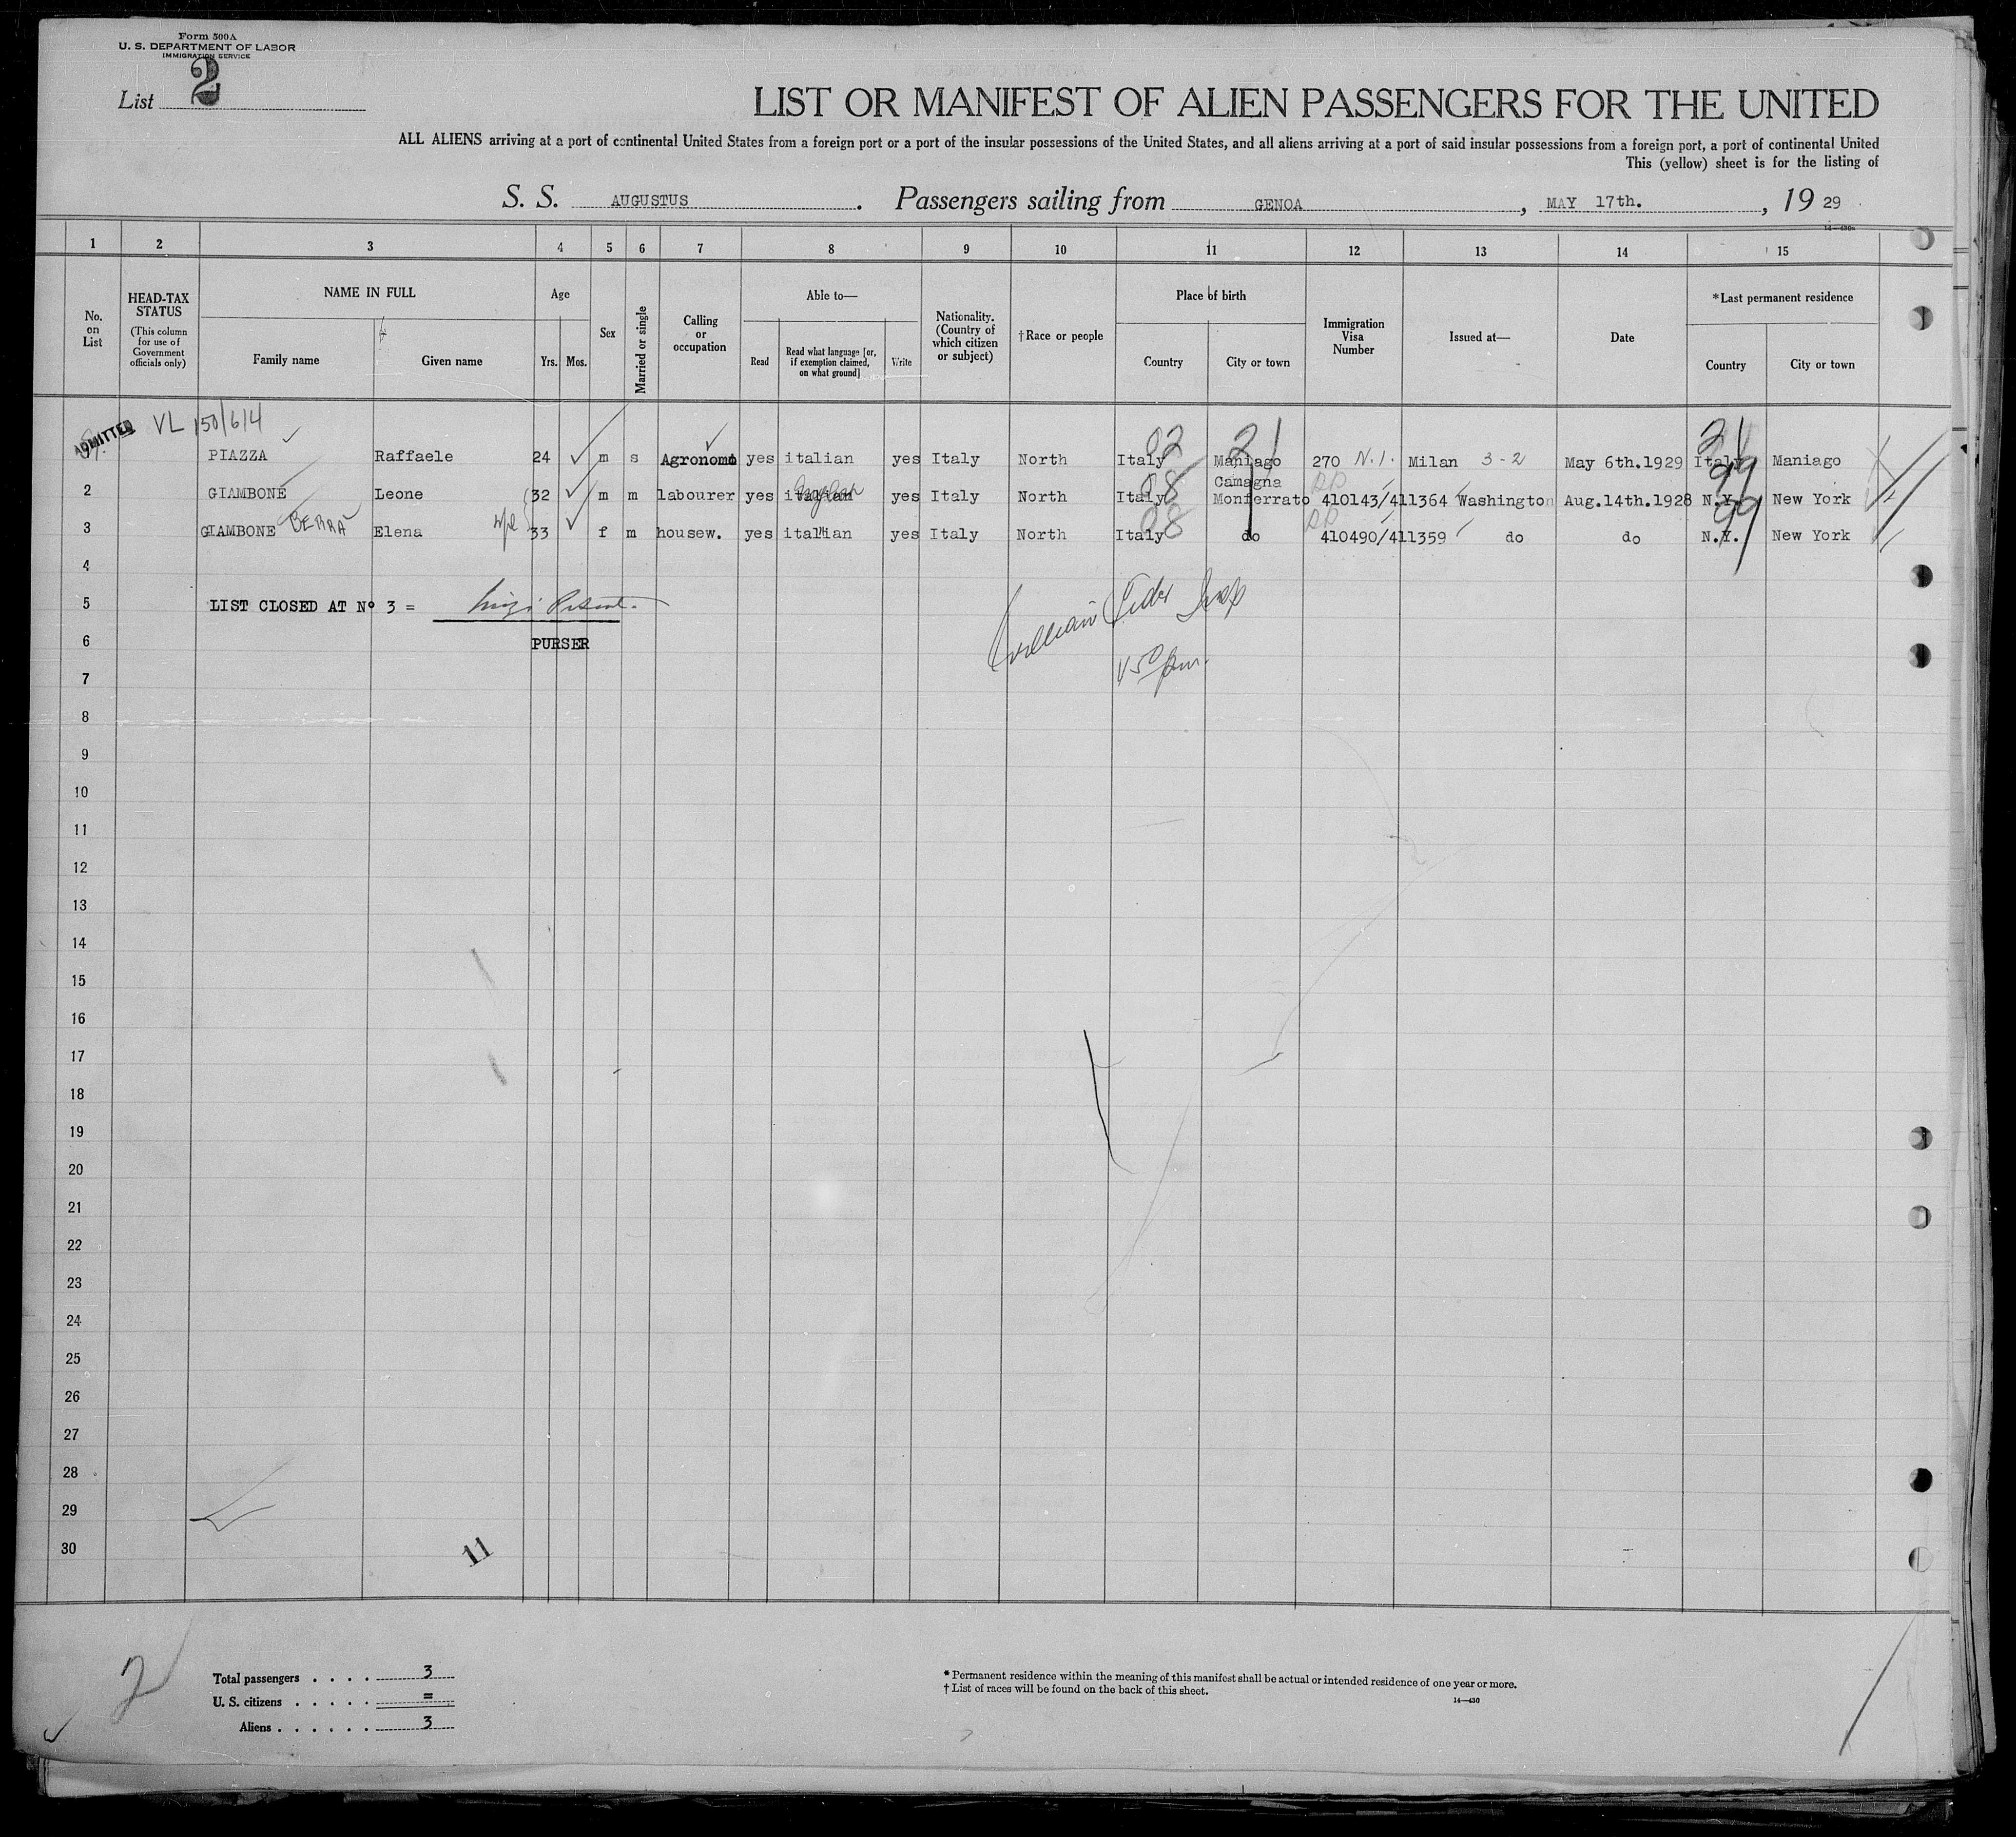 Form 500A
U. S. DEPARTMENT OF LABOR
IMMIGRATION SERVICE
List 2
LIST OR MANIFEST OF ALIEN PASSENGERS FOR THE UNITED
ALL ALIENS arriving at a port of continental United States from a foreign port or a port of the insular possessions of the United States, and all aliens arriving at a port of said insular possessions from a foreign port, a port of continental United
This (yellow) sheet is for the listing of
S. S. AUGUSTUS. Passengers sailing from GENOA, MAY 17th., 19 29
1 2 3 4 5 6 7 8 9 10 11 12 13 14 15
No. on List
HEAD-TAX STATUS (This column for use of Government officials only)
NAME IN FULL
Family name Given name
Age
Yrs. Mos.
Sex
Married or single
Calling or occupation
Able to—
Read Read what language [or, if exemption claimed, on what ground] Write
Nationality. (Country of which citizen or subject)
†Race or people
Place of birth
Country City or town
Immigration Visa Number
Issued at—
Date
*Last permanent residence
Country City or town
ADMITTED VL 150/614 02 21 21
PIAZZA Raffaele 24 m s Agronomo yes italian yes Italy North Italy Maniago 270 N.I. Milan 3-2 May 6th.1929 Italy Maniago
08 Camagna 99
2 GIAMBONE Leone 32 m m labourer yes italian English yes Italy North Italy Monferrato 410143/411364 Washington Aug.14th.1928 N.Y. New York
08 99
3 GIAMBONE BERRA Elena wfe 33 f m housew. yes italian yes Italy North Italy do 410490/411359 do do N.Y. New York
4
5 LIST CLOSED AT Nº 3 =
6 PURSER
7
8
9
10
11
12
13
14
15
16
17
18
19
20
21
22
23
24
25
26
27
28
29
30
11
2
Total passengers . . . . 3
U. S. citizens . . . . . =
Aliens . . . . . . 3
* Permanent residence within the meaning of this manifest shall be actual or intended residence of one year or more.
† List of races will be found on the back of this sheet.
14—430